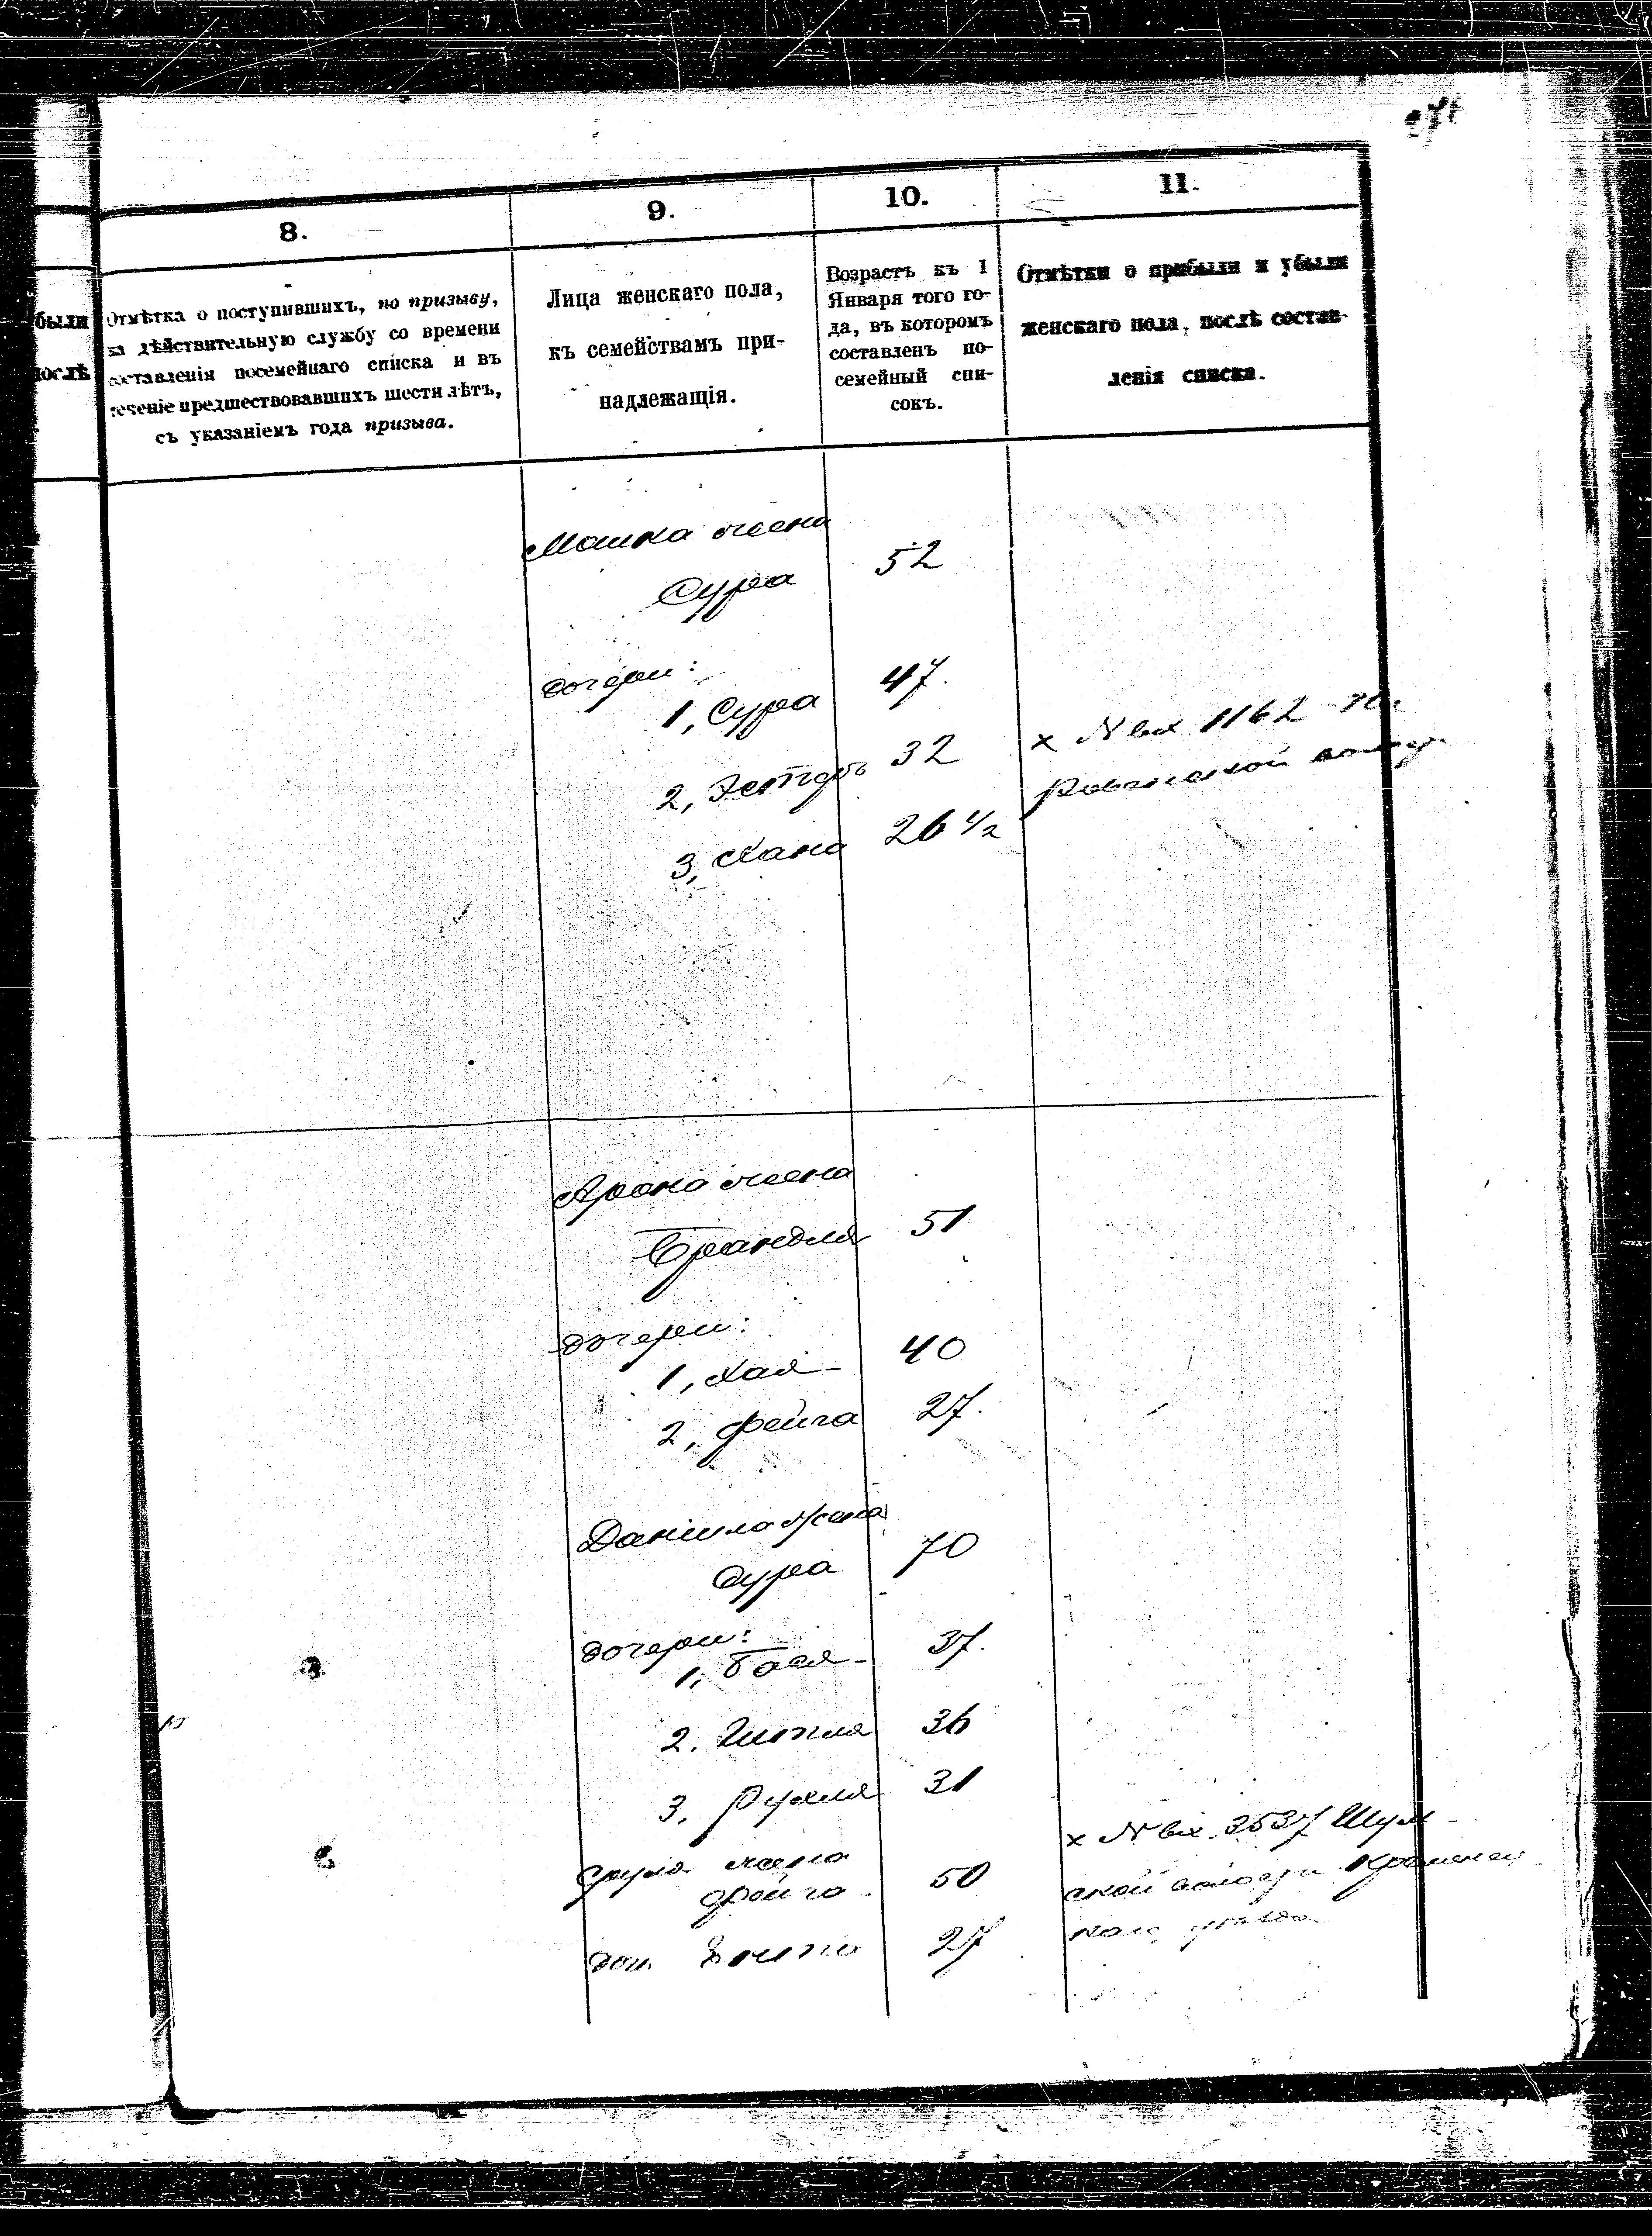 8.
9.
10.
11.
были
послѣ
Отмѣтка о поступившихъ, по призыву,
на дѣйствительную службу со времени
составленія посемейнаго списка и въ
теченіе предшествовавшихъ шести лѣтъ,
съ указаніемъ года призыва.
Лица женскаго пола,
къ семействамъ при-
надлежащія.
Возрастъ къ 1
Января того го-
да, въ которомъ
составленъ по-
семейный спи-
сокъ.
Отмѣтки о прибыли и убыли
женскаго пола, послѣ состав-
ленія списка.
Мошка жена
Сура 52
дочери:
1, Сура 47.
2, Эстеръ 32
3, Хана 26 1/2
х N вх 1162
Ровенской
Арона жена
Брандля 51
дочери:
1, Хая 40
2, Фейга 27.
Даниила жена
Сура 70
дочери:
1, Бася 37.
2. Гитля 36
3. Рухля 31
Срула жена
Фейга 50
доч. 27
х N вх. 3537 Шум-
ской волости Кременец-
каго уѣзда